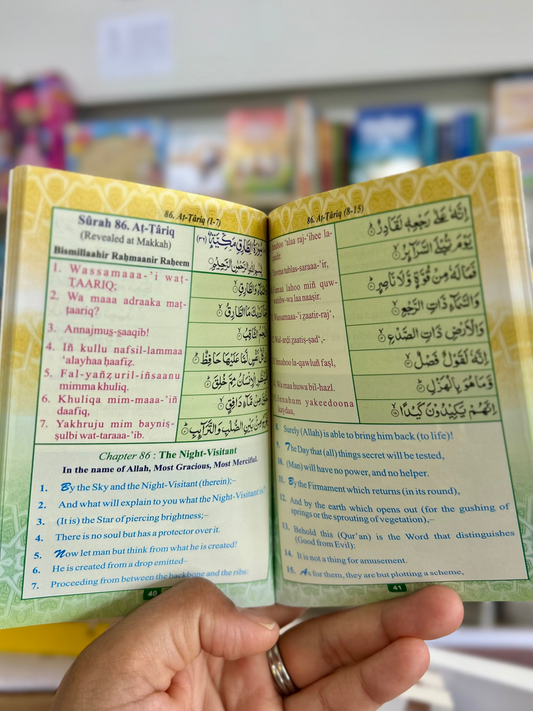 86. Aṭ-Ṭâriq (1-7)
Sûrah 86. Aṭ-Ṭâriq
(Revealed at Makkah)
Bismillaahir Raḥmaanir Raḥeem
1. Wassamaaa-'i waṭ-
ṬAARIQ;
2. Wa maaa adraaka maṭ-
ṭaariq?
3. Annajmuṣ-ṣaaqib!
4. Iñ kullu nafsil-lammaa
'alayhaa ḥaafiẓ.
5. Fal-yañẓuril-iñsaanu
mimma khuliq.
6. Khuliqa mim-maaa-'iñ
daafiq,
7. Yakhruju mim bayniṣ-
ṣulbi wat-taraaa-'ib.
بِسْمِ اللّٰهِ الرَّحْمٰنِ الرَّحِيْمِ
وَالسَّمَآءِ وَالطَّارِقِ
Chapter 86 : The Night-Visitant
In the name of Allah, Most Gracious, Most Merciful.
1. By the Sky and the Night-Visitant (therein);–
2. And what will explain to you what the Night-Visitant is?
3. (It is) the Star of piercing brightness;–
4. There is no soul but has a protector over it.
5. Now let man but think from what he is created!
6. He is created from a drop emitted–
7. Proceeding from between the backbone and the ribs:
40
86. Aṭ-Ṭâriq (8-15)
'alaa raj-'ihee la-
tublas-saraaa-'ir,
lahoo miñ quw-
wa laa naaṣir.
Wassamaaa-'i zaatir-raj',
Wal-arḍi zaatiṣ-ṣad',-
la-qawluñ faṣl,
Wa maa huwa bil-hazl.
yakeedoona
kaydaa,
اِنَّهٗ عَلٰى رَجْعِهٖ لَقَادِرٌ
يَوْمَ تُبْلَى السَّرَآئِرُ
فَمَا لَهٗ مِنْ قُوَّةٍ وَّلَا نَاصِرٍ
وَالسَّمَآءِ ذَاتِ الرَّجْعِ
وَالْاَرْضِ ذَاتِ الصَّدْعِ
اِنَّهٗ لَقَوْلٌ فَصْلٌ
وَّمَا هُوَ بِالْهَزْلِ
اِنَّهُمْ يَكِيْدُوْنَ كَيْدًا
8. Surely (Allah) is able to bring him back (to life)!
9. The Day that (all) things secret will be tested,
10. (Man) will have no power, and no helper.
11. By the Firmament which returns (in its round),
12. And by the earth which opens out (for the gushing of
springs or the sprouting of vegetation),–
13. Behold this (Qur'an) is the Word that distinguishes
(Good from Evil):
14. It is not a thing for amusement.
15. As for them, they are but plotting a scheme,
41